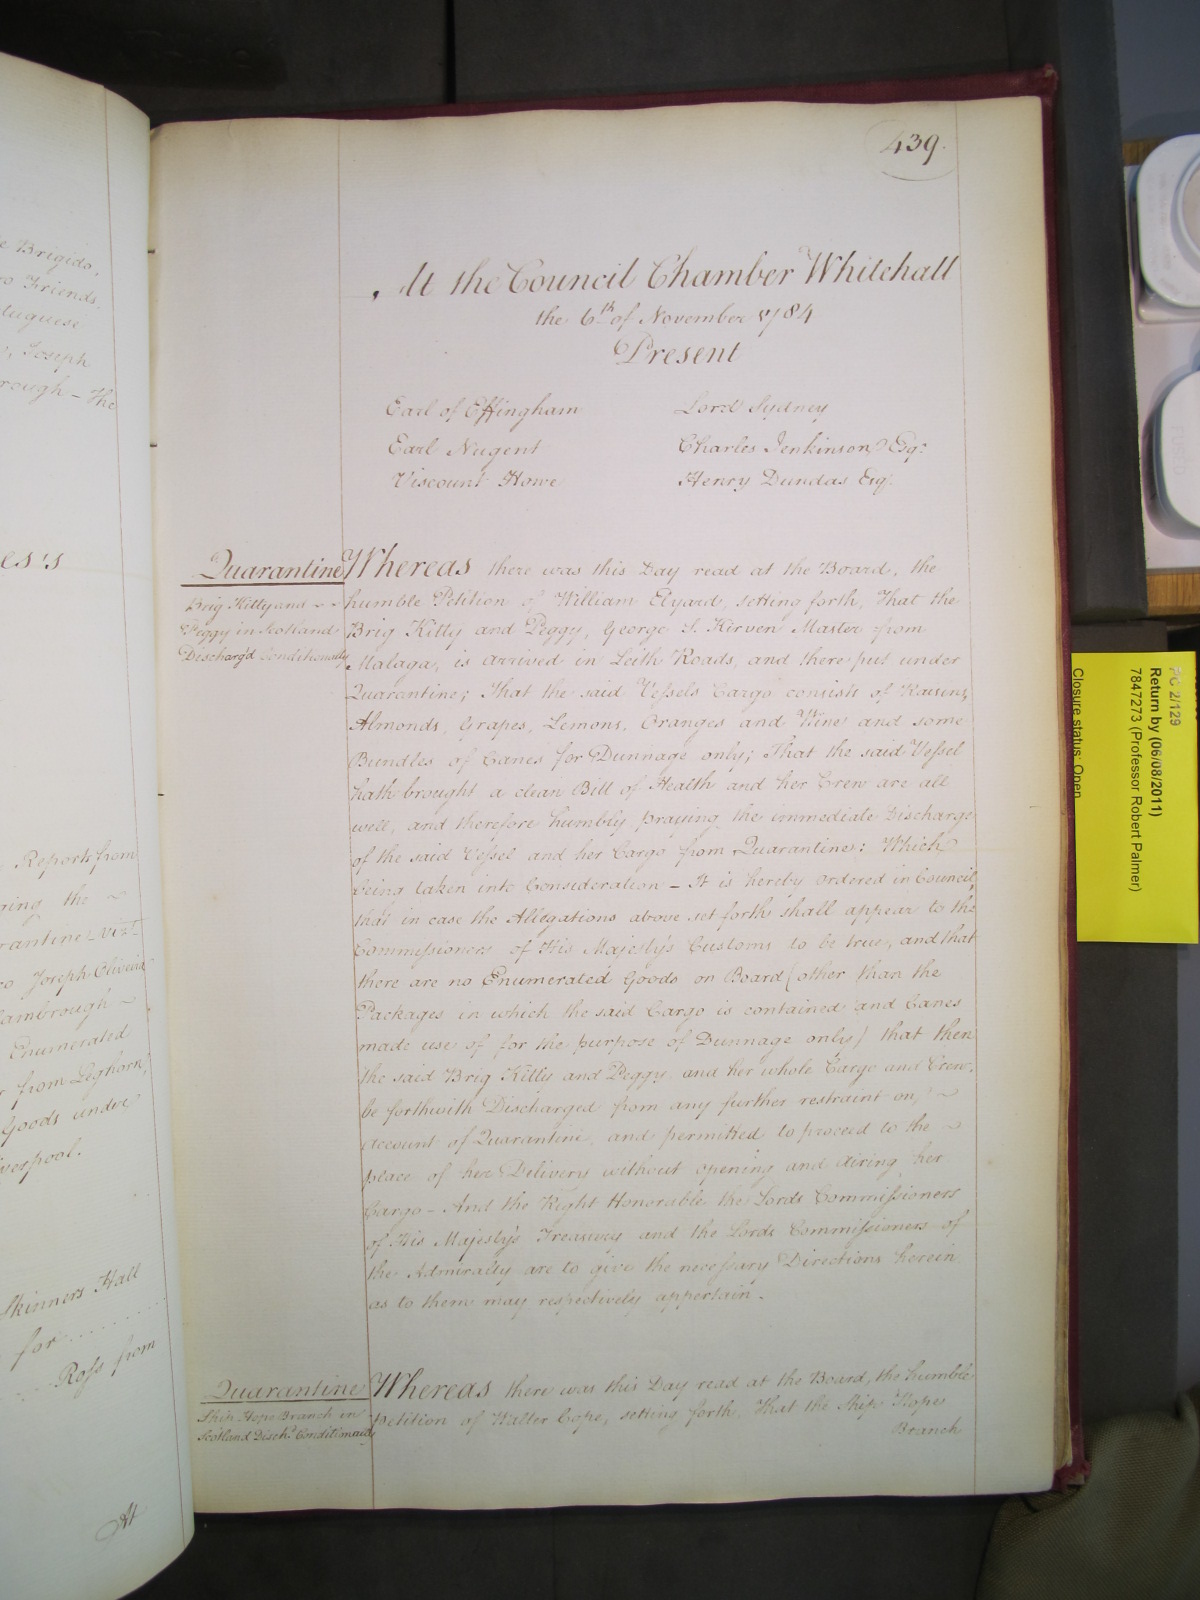 439.
At the Council Chamber Whitehall
the 6th of November 1784
Present
Earl of Effingham
Earl Nugent
Viscount Howe
Lord Sydney
Charles Jenkinson Esqr
Henry Dundas Esqr
Quarantine
Brig Kitty and
Peggy in Scotland
Discharg'd Conditionally
Whereas there was this Day read at the Board, the
humble Petition of William Elyard, setting forth, That the
Brig Kitty and Peggy, George S. Kirven Master from
Malaga, is arrived in Leith Roads, and there put under
Quarantine; That the said Vessels Cargo consists of Raisins,
Almonds, Grapes, Lemons, Oranges and Wine and some
Bundles of Canes for Dunnage only; That the said Vessel
hath brought a clean Bill of Health and her Crew are all
well, and therefore humbly praying the immediate Discharge
of the said Vessel and her Cargo from Quarantine: Which
being taken into Consideration – It is hereby ordered in Council,
that in case the Allegations above set forth shall appear to the
Commissioners of His Majesty's Customs to be true, and that
there are no Enumerated Goods on Board (other than the
Packages in which the said Cargo is contained and Canes
made use of for the purpose of Dunnage only) that then
the said Brig Kitty and Peggy and her whole Cargo and Crew,
be forthwith Discharged from any further restraint on
account of Quarantine, and permitted to proceed to the
place of her Delivery without opening and airing her
Cargo – And the Right Honorable the Lords Commissioners
of His Majesty's Treasury and the Lords Commissioners of
the Admiralty are to give the necessary Directions herein
as to them may respectively appertain.
Quarantine
Ship Hope Branch in
Scotland Disch'd Conditionally
Whereas there was this Day read at the Board, the humble
petition of Walter Cope, setting forth, That the Ship Hopes
Branch
e Brigido,
o Friends
tuguese
, Joseph
rough – The
es's
Reports from
ging the
rantine Vizt
o Joseph Oliveira
Flambrough
Enumerated
r from Leghorn,
Goods under
verpool.
Skinners Hall
for
Ross from
At
PC 2/129
Return by (06/08/2011)
7847273 (Professor Robert Palmer)
Closure status: Open